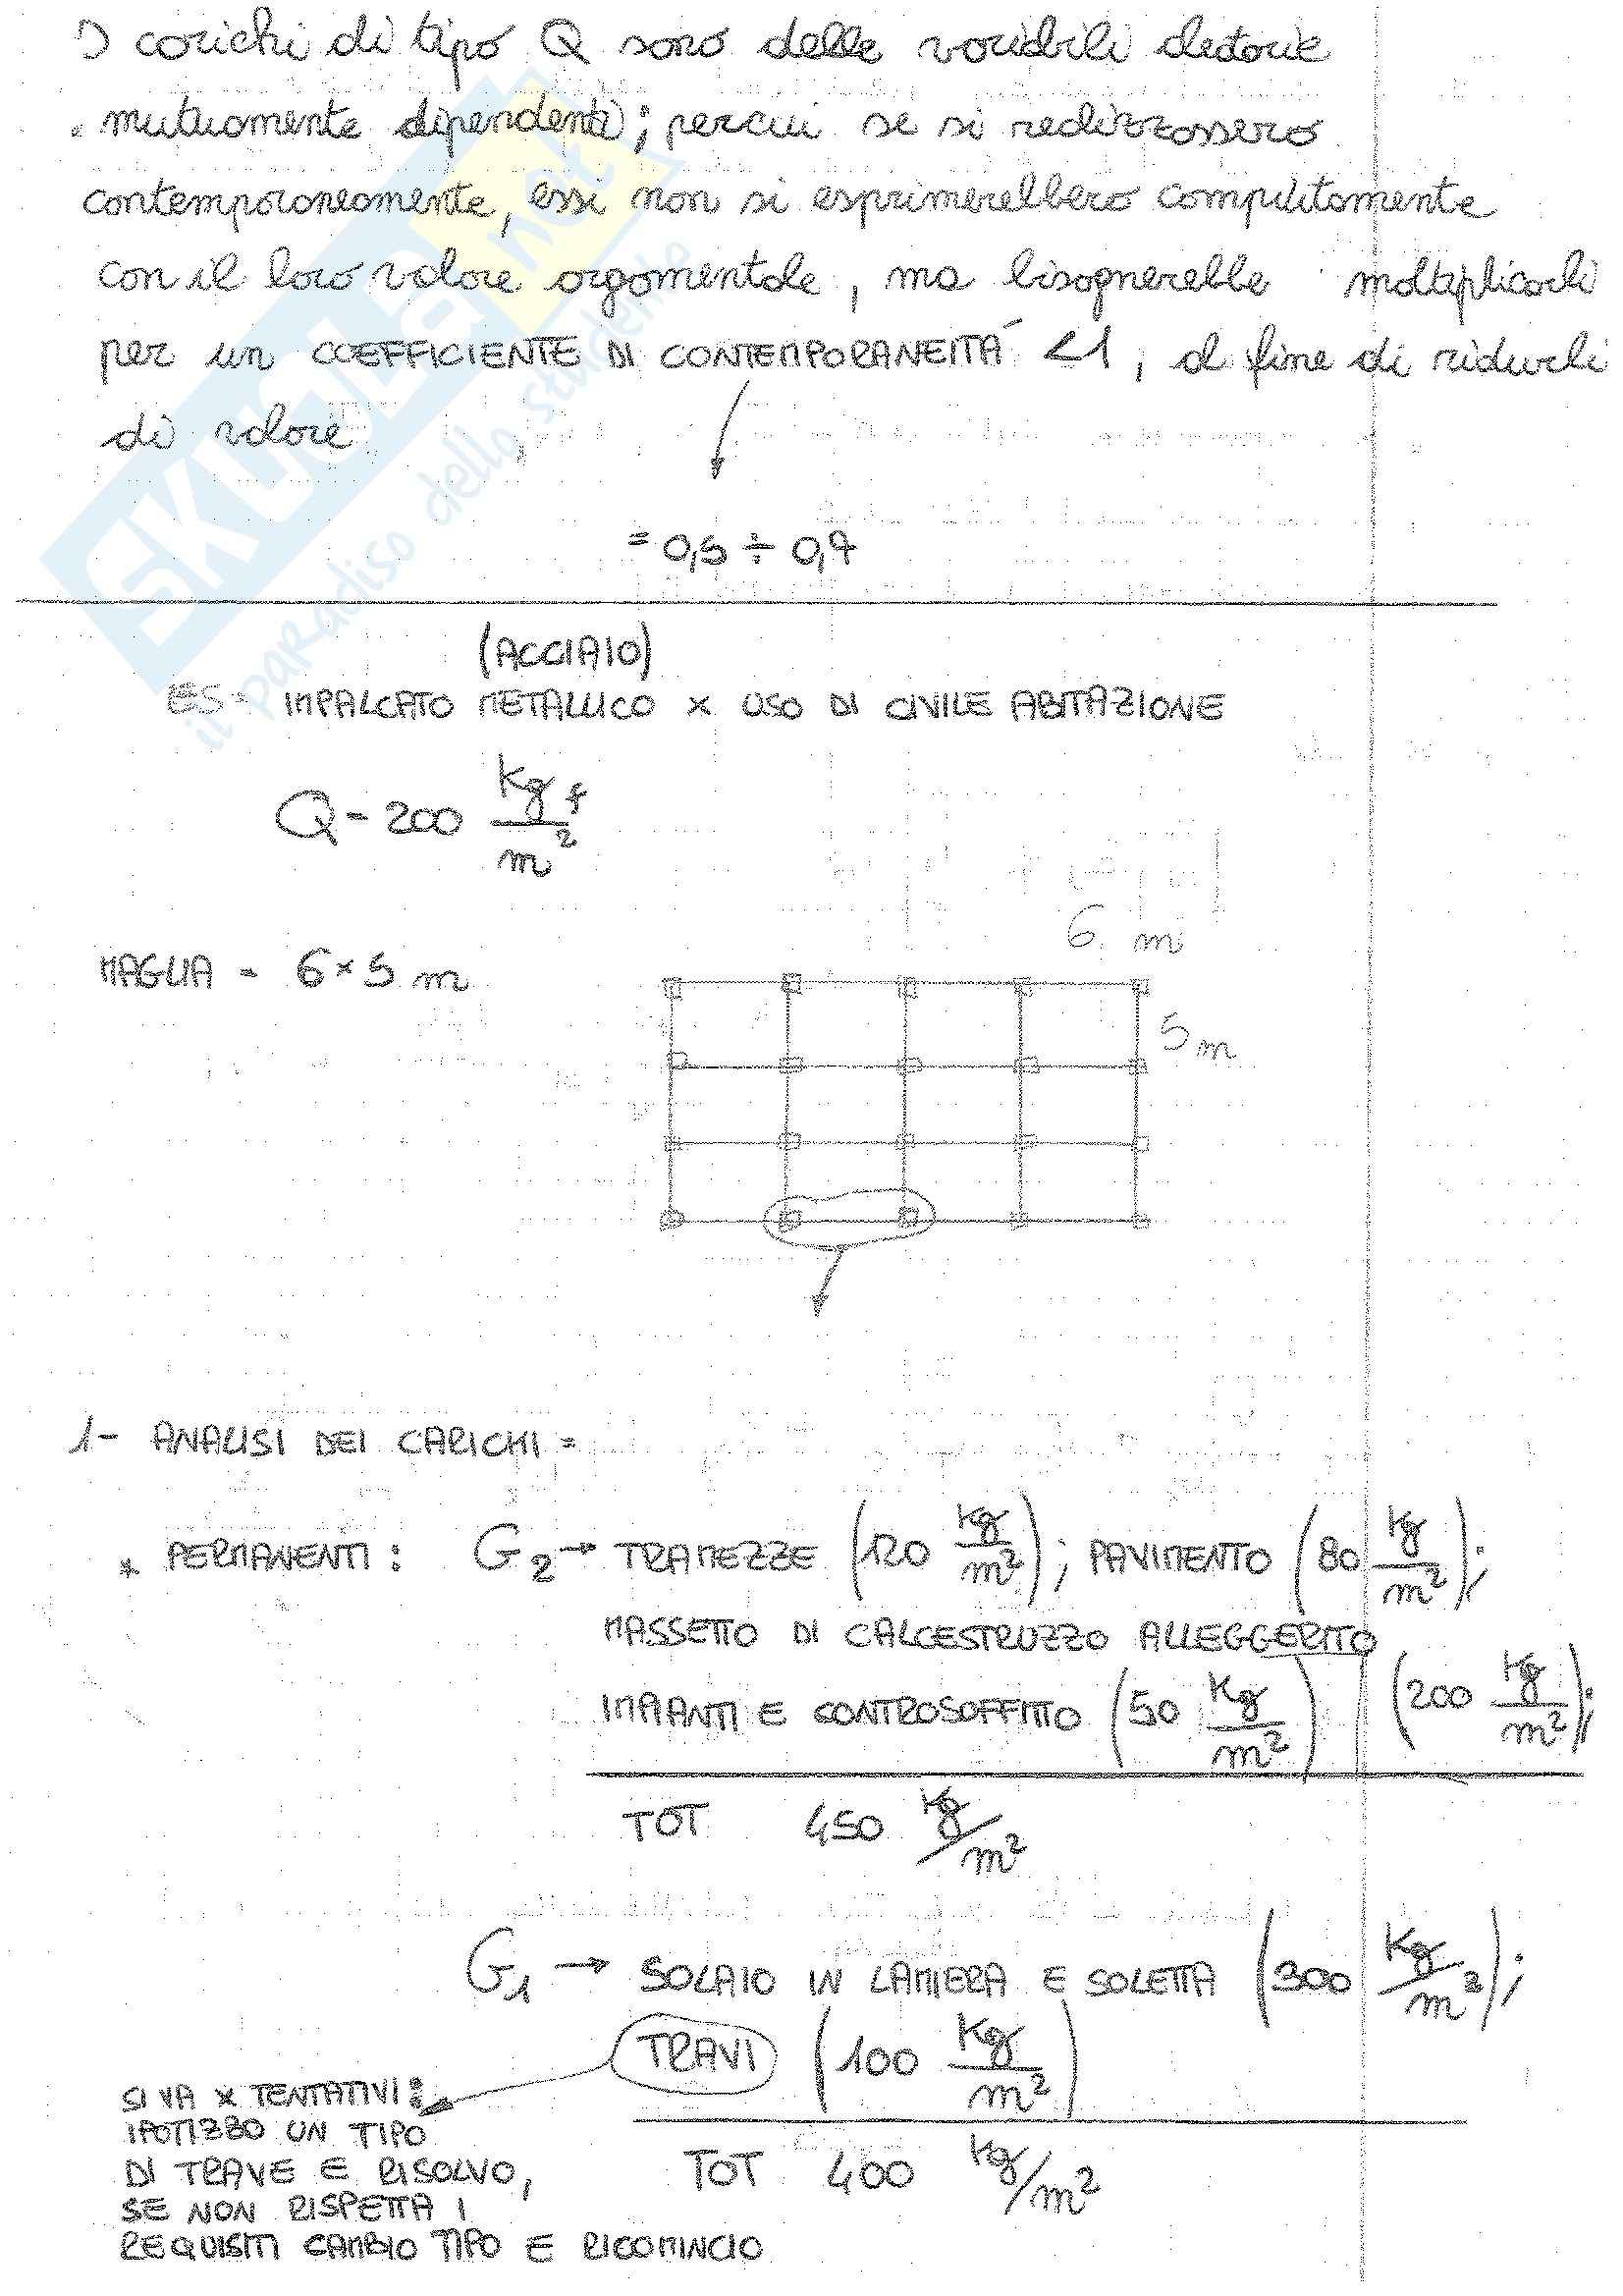 I carichi di tipo Q sono delle variabili aleatorie
mutuamente dipendenti; percui se si realizzassero
contemporaneamente, essi non si esprimerebbero compiutamente
con il loro valore argomentale, ma bisognerebbe moltiplicarli
per un COEFFICIENTE DI CONTEMPORANEITÀ <1, al fine di ridurli
di valore
= 0,5 ÷ 0,7
(ACCIAIO)
ES= IMPALCATO METALLICO x USO DI CIVILE ABITAZIONE
Q = 200 kgf/m²
6 m
MAGLIA = 6x5 m
5 m
1- ANALISI DEI CARICHI =
* PERMANENTI: G2 → TRAMEZZE (120 kg/m²); PAVIMENTO (80 kg/m²);
MASSETTO DI CALCESTRUZZO ALLEGGERITO (200 kg/m²);
IMPIANTI E CONTROSOFFITTO (50 kg/m²)
TOT 450 kg/m²
G1 → SOLAIO IN LAMIERA E SOLETTA (300 kg/m²);
TRAVI (100 kg/m²)
TOT 400 kg/m²
SI VA x TENTATIVI:
IPOTIZZO UN TIPO
DI TRAVE E RISOLVO,
SE NON RISPETTA I
REQUISITI CAMBIO TIPO E RICOMINCIO
SKUOLA.net
il paradiso dello studente